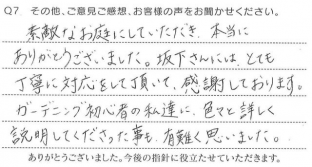 Q7 その他、ご意見ご感想、お客様の声をお聞かせください。
素敵なお庭にしていただき、本当に
ありがとうございました。坂下さんには、とても
丁寧に対応をして頂いて、感謝しております。
ガーデニング初心者の私達に、色々と詳しく
説明してくださった事も、有難く思いました。
ありがとうございました。今後の指針に役立たせていただきます。